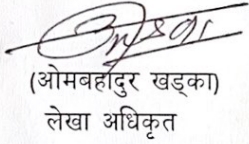 (ओमबहादुर खड्का)
लेखा अधिकृत